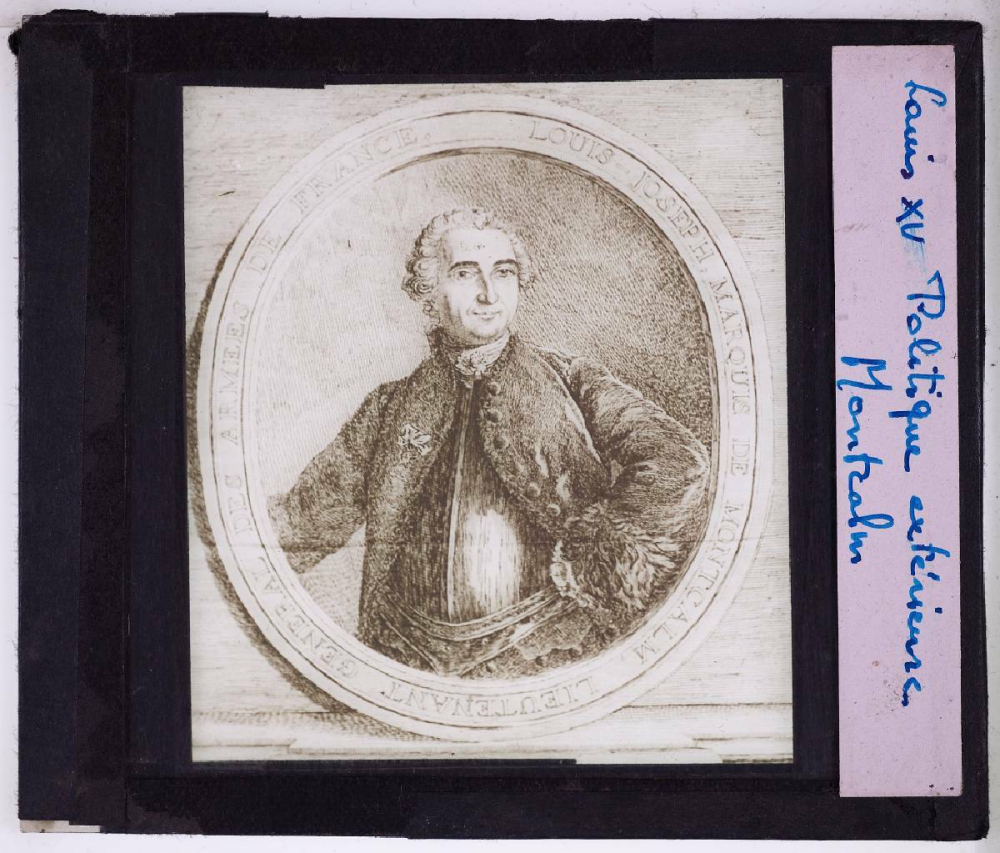 LOUIS-JOSEPH, MARQUIS DE MONTCALM, LIEUTENANT GENERAL DES ARMEES DE FRANCE.
Louis XV Politique extérieure
Montcalm